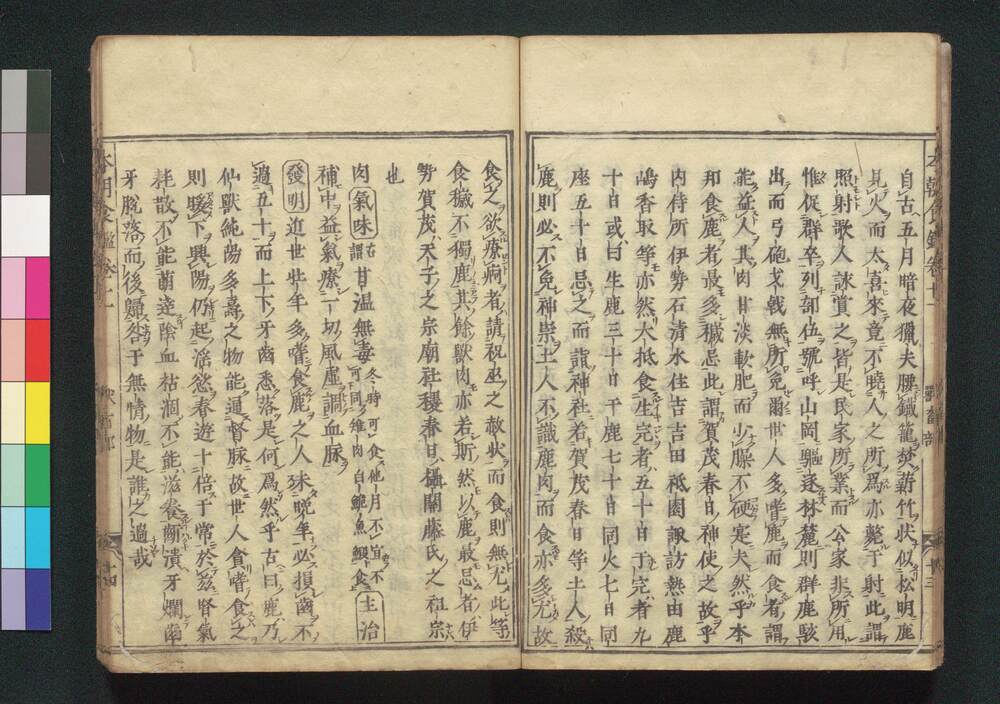 本朝食鑑卷十一 獸畜部 十三
自古五月暗夜獵夫腰鐵籠焚薪竹狀似松明鹿
見火而太喜來竟不曉人之所爲亦斃于射此謂
照射歌人詠賞之皆是民家所業而公家非所用
惟促群卒列部伍號呼山岡驅逐林麓則群鹿駭
出而弓砲戈戟無所免爾世人多嗜鹿而食者謂
能益人其肉甘淡軟肥而少臊不硬寔夫然乎本
邦食鹿者最多穢忌此謂賀茂春日神使之故乎
内侍所伊勢石清水住吉吉田祗園諏訪熱由鹿
嶋香取等亦然大抵食生完者五十日于完者九
十日或曰生鹿三十日干鹿七十日同火七日同
座五十日忌之而詣神社若賀茂春日等土人殺
鹿則必不免神祟土人不識鹿肉而食亦多尤故
食之欲療病者請祝巫之赦状而食則無尤此等
食穢不獨鹿其餘獸肉亦若斯然以鹿敢忌者伊
勢賀茂天子之宗廟社稷春日攝關藤氏之祖宗
也
肉 氣味 甘温無毒 冬時可食他月不宜不可同雉肉白鮠魚鰕食 主治
補中益氣療一切風虛調血脉
發明 近世壮年多嗜食鹿之人殊晩年必損齒不
過五十而上下牙齒悉落是何爲然乎古曰鹿乃
仙獸純陽多壽之物能通督脉故世人貪嗜食之
則暖下興陽仍起淫慾春遊十倍于常於玆腎氣
耗散不能萌達陰血枯涸不能滋養齗潰牙爛齒
牙脱落而後歸咎于無情物是誰之過哉
本朝食鑑卷十一 獸畜部 十四